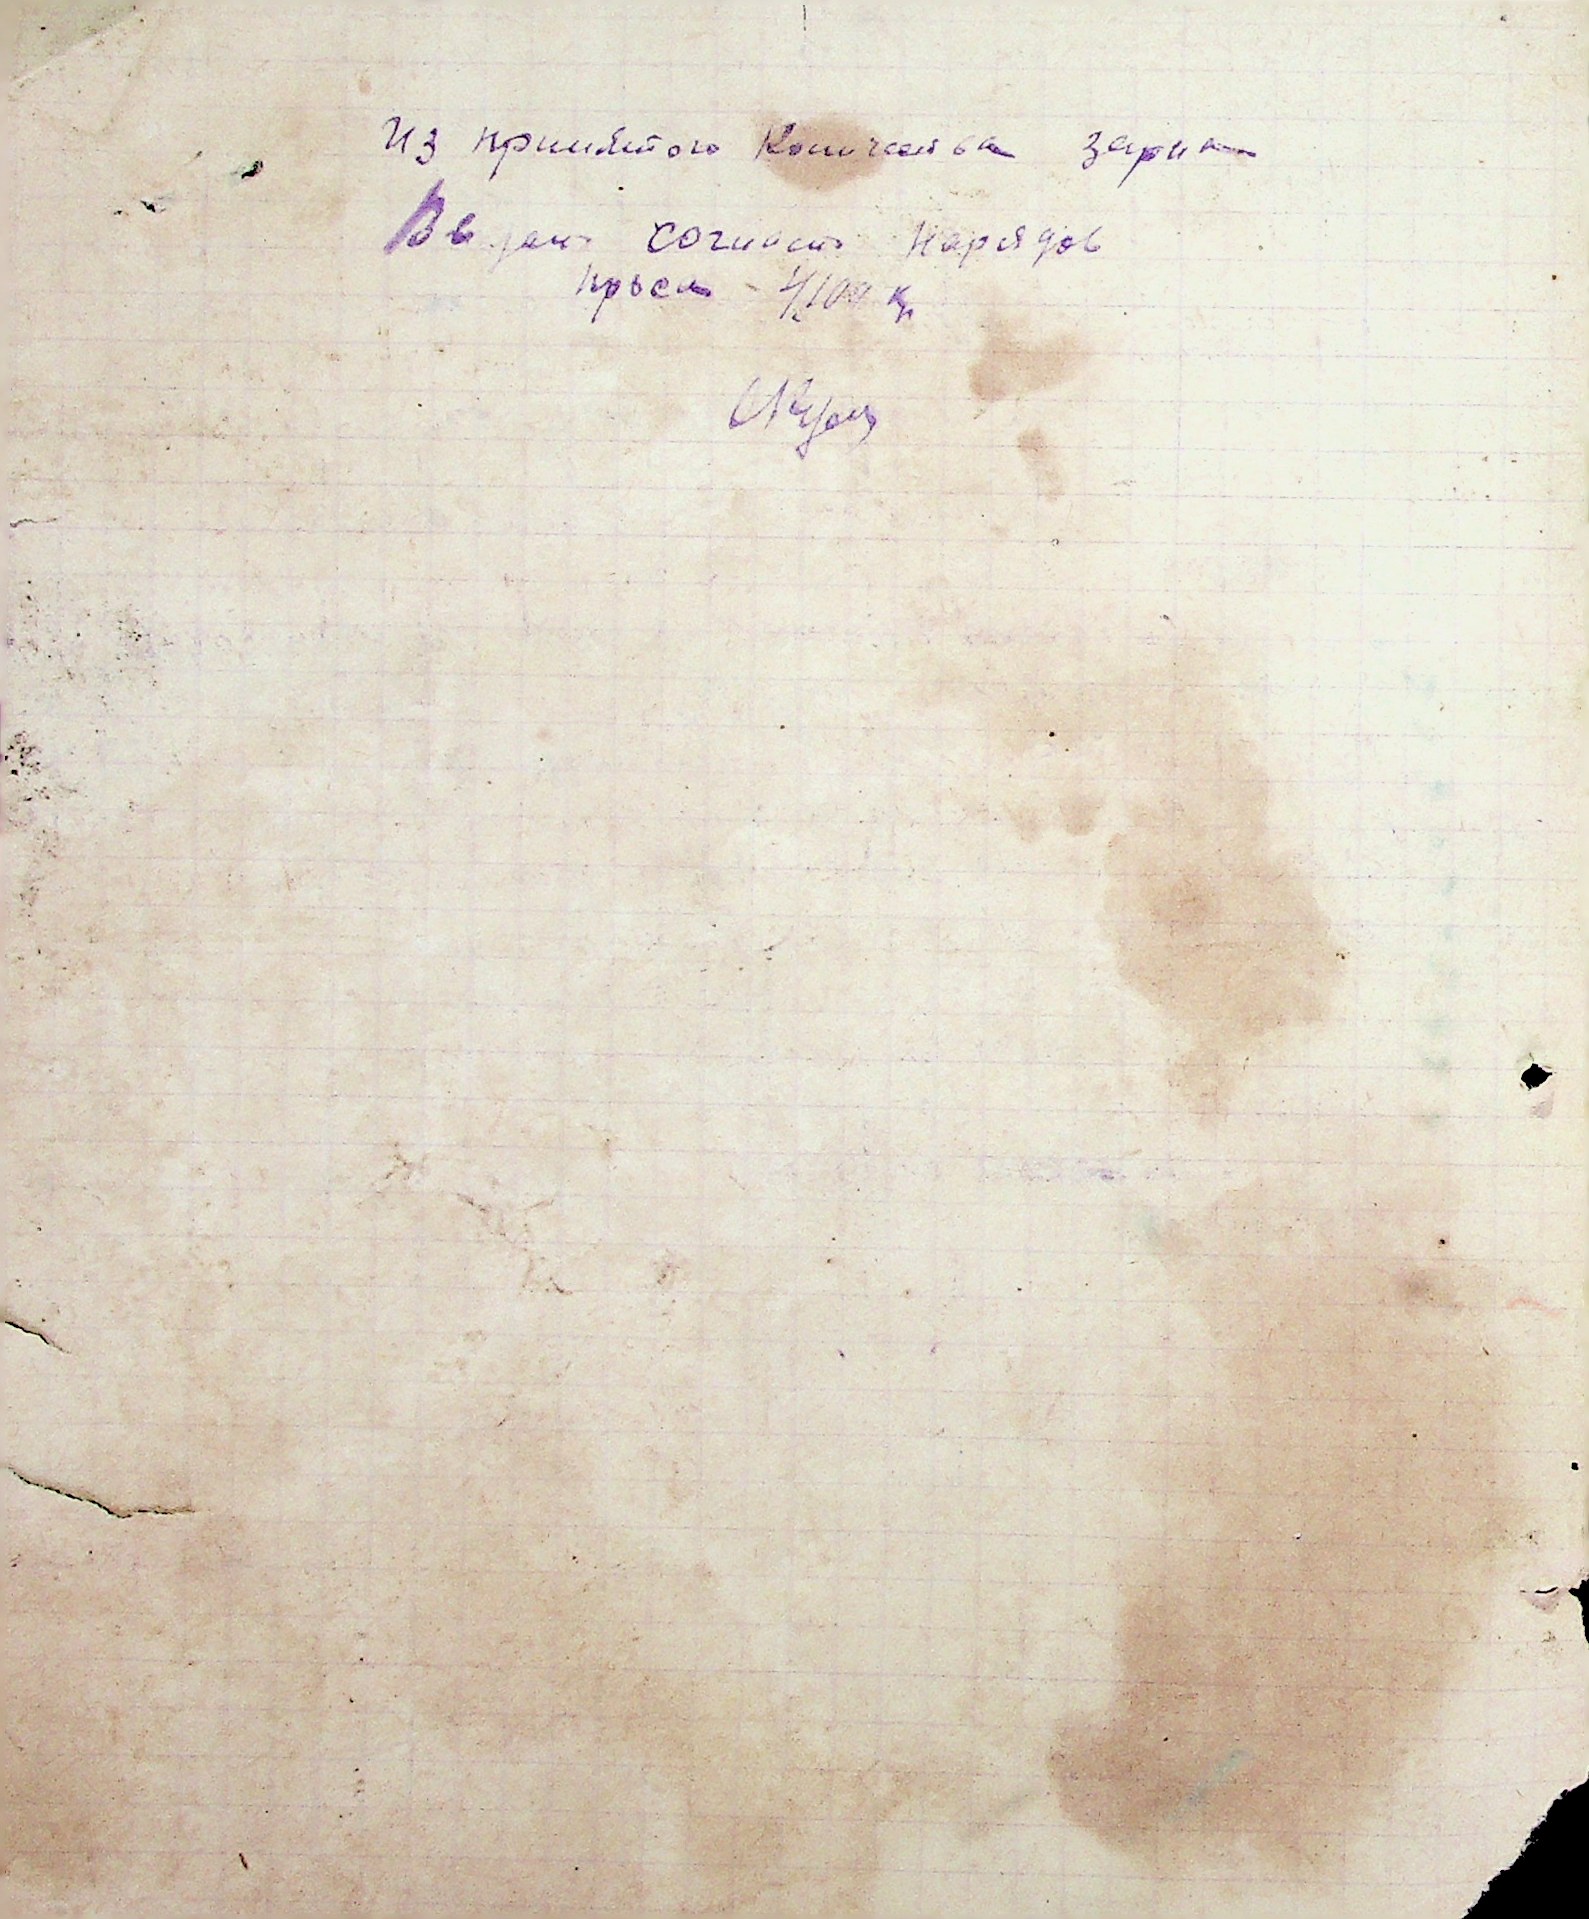 Из принятого количества зерна
Выдано согласно нарядов
проса - 4100 кг